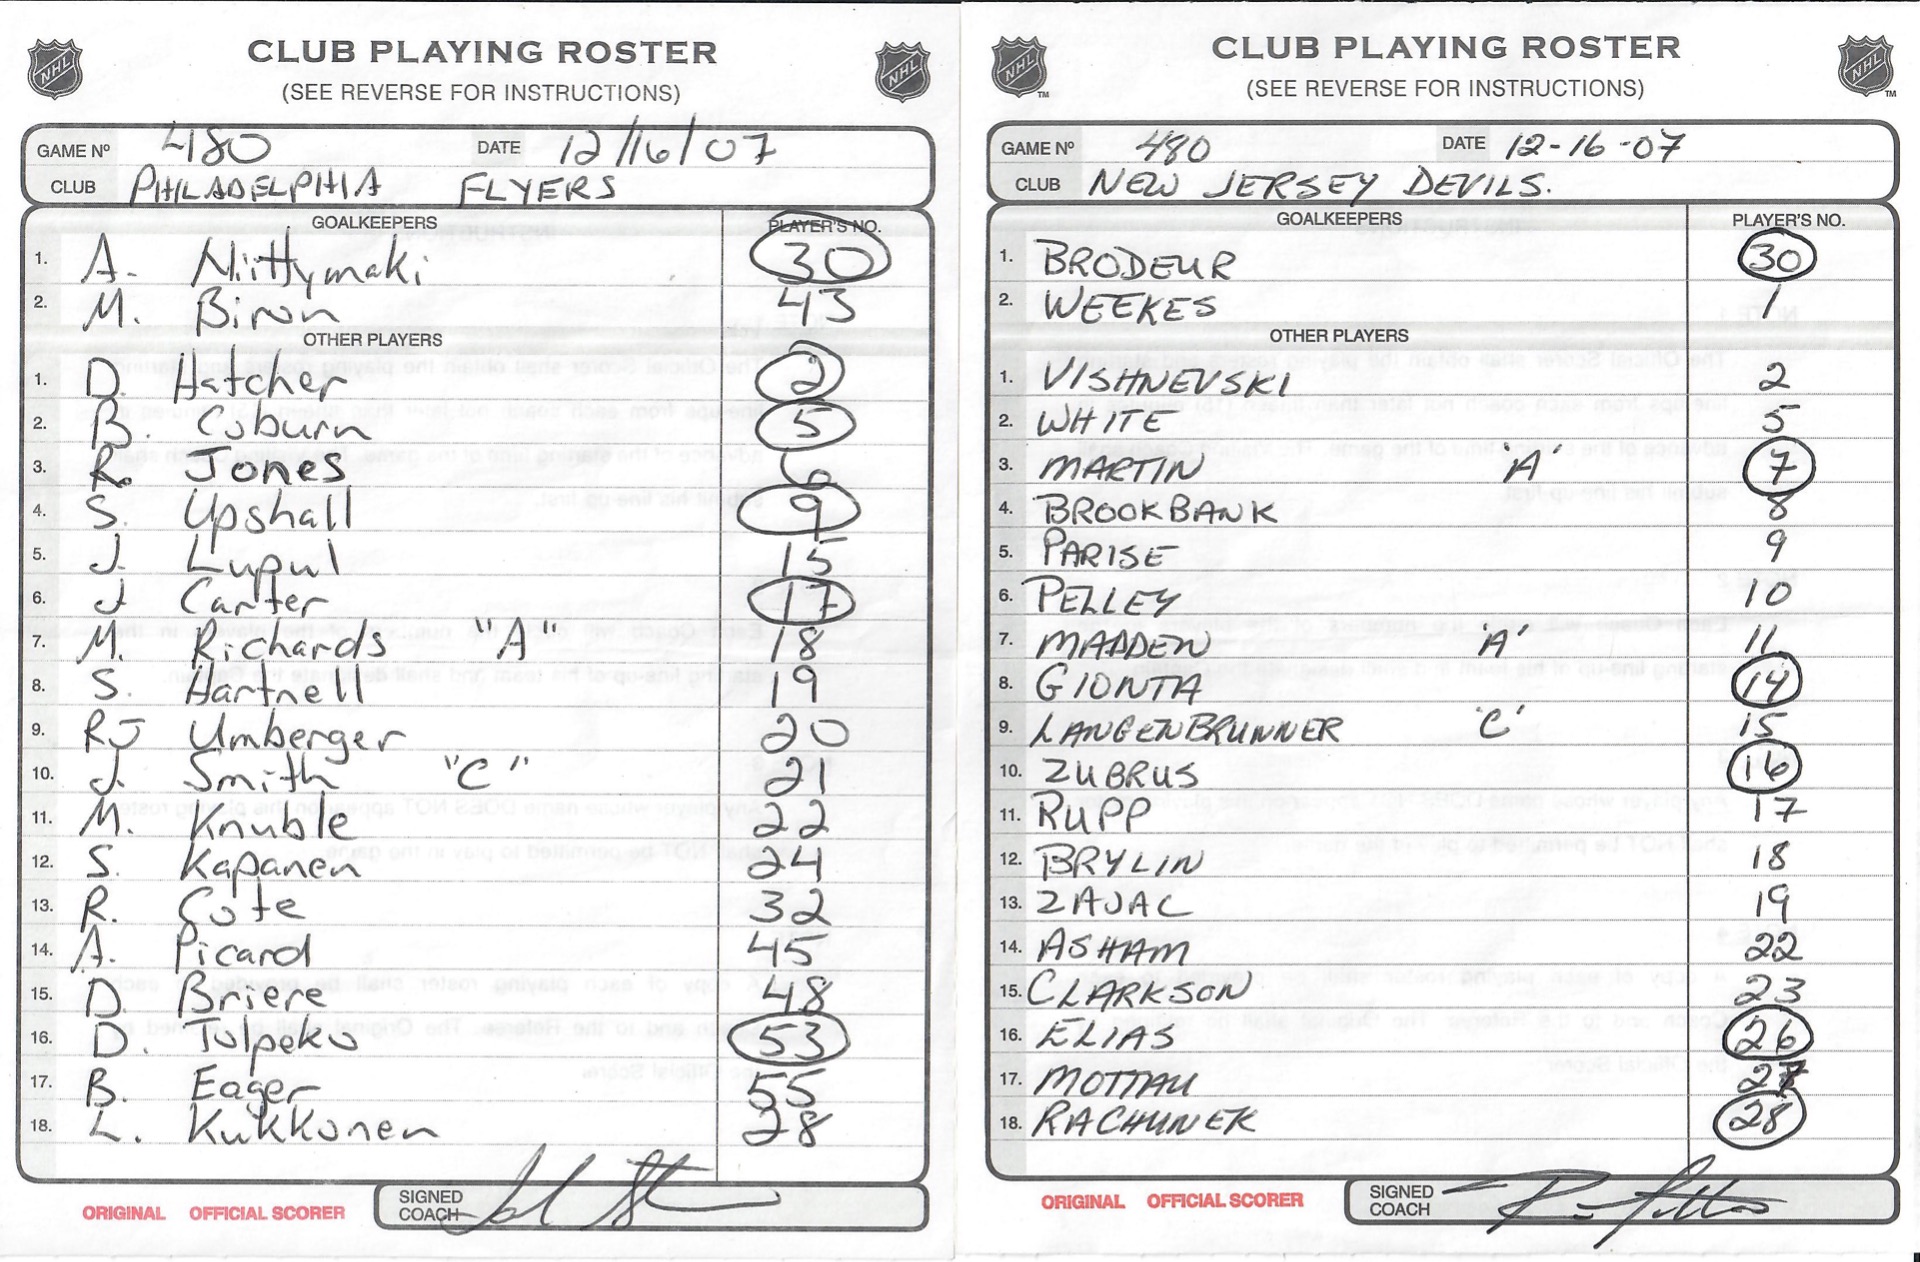 NHL CLUB PLAYING ROSTER NHL
(SEE REVERSE FOR INSTRUCTIONS)
GAME Nº 480 DATE 12/16/07
CLUB PHILADELPHIA FLYERS
GOALKEEPERS PLAYER'S NO.
1. A. Niittymaki 30
2. M. Biron 43
OTHER PLAYERS
1. D. Hatcher 2
2. B. Coburn 5
3. R. Jones 6
4. S. Upshall 9
5. J. Lupul 15
6. J. Carter 17
7. M. Richards "A" 18
8. S. Hartnell 19
9. RJ Umberger 20
10. J. Smith "C" 21
11. M. Knuble 22
12. S. Kapanen 24
13. R. Cote 32
14. A. Picard 45
15. D. Briere 48
16. D. Tolpeko 53
17. B. Eager 55
18. L. Kukkonen 28
ORIGINAL OFFICIAL SCORER SIGNED COACH
NHL CLUB PLAYING ROSTER NHL
(SEE REVERSE FOR INSTRUCTIONS)
GAME Nº 480 DATE 12-16-07
CLUB NEW JERSEY DEVILS.
GOALKEEPERS PLAYER'S NO.
1. BRODEUR 30
2. WEEKES 1
OTHER PLAYERS
1. VISHNEVSKI 2
2. WHITE 5
3. MARTIN 'A' 7
4. BROOKBANK 8
5. PARISE 9
6. PELLEY 10
7. MADDEN 'A' 11
8. GIONTA 14
9. LANGENBRUNNER 'C' 15
10. ZUBRUS 16
11. RUPP 17
12. BRYLIN 18
13. ZAJAC 19
14. ASHAM 22
15. CLARKSON 23
16. ELIAS 26
17. MOTTAU 27
18. RACHUNEK 28
ORIGINAL OFFICIAL SCORER SIGNED COACH